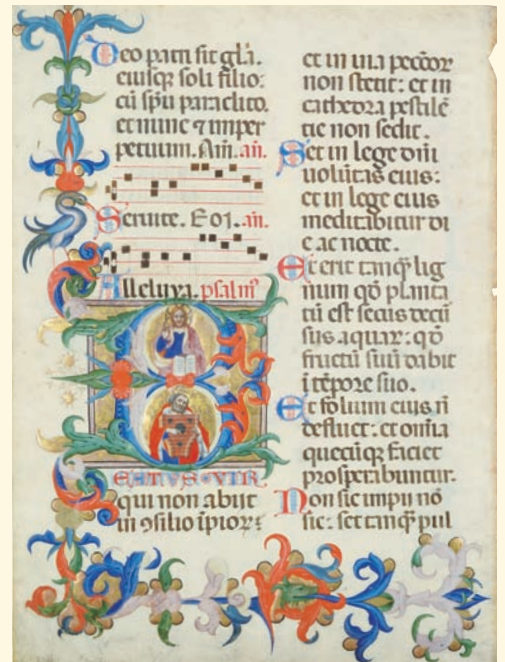 Deo patri sit gl̄a.
eiusq̨ soli filio:
cū sp̄u paraclito.
et nunc ⁊ imper
petuum. Am̄. an̄.
Seruite. E o ı. an̄.
Alleluya. psalm⁹
B
EATVS·VIR
qui non abiit
in ꝯsilio īpioꝝ:
et in uia peccōr
non stetit: et in
cathedra pestilē
tie non sedit.
Set in lege dn̄i
uolūtas eius:
et in lege eius
meditabitur di
e ac nocte.
Et erit tanq̄ lig
num qō planta
tū est secus decū
sus aquar: qō
fructū suū dabit
ī tēpore suo.
Et folium eius n̄
defluet: et om̄ia
quecūq̨ faciet
prosperabuntur.
Non sic impii nō
sic: set tanq̄ pul